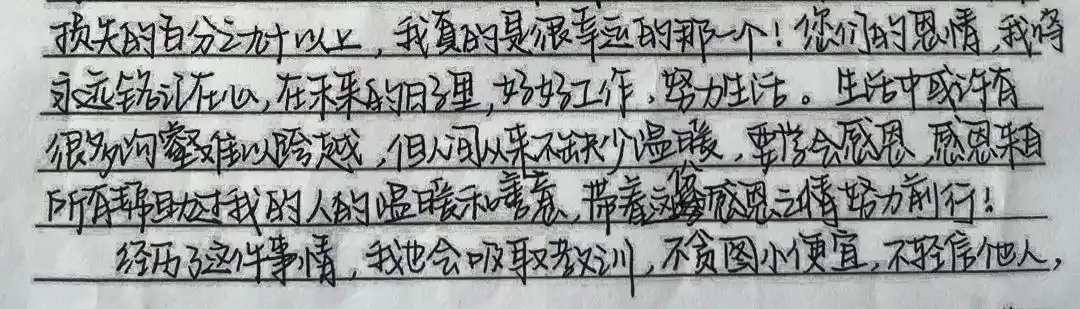 损失的百分之九十以上，我真的是很幸运的那一个！您们的恩情，我将
永远铭记在心，在未来的日子里，好好工作，努力生活。生活中或许有
很多沟壑难以跨越，但人间从来不缺少温暖，要学会感恩，感恩来自
所有帮助过我的人的温暖和善意，带着这份感恩之情努力前行！
经历了这件事情，我也会吸取教训，不贪图小便宜，不轻信他人，